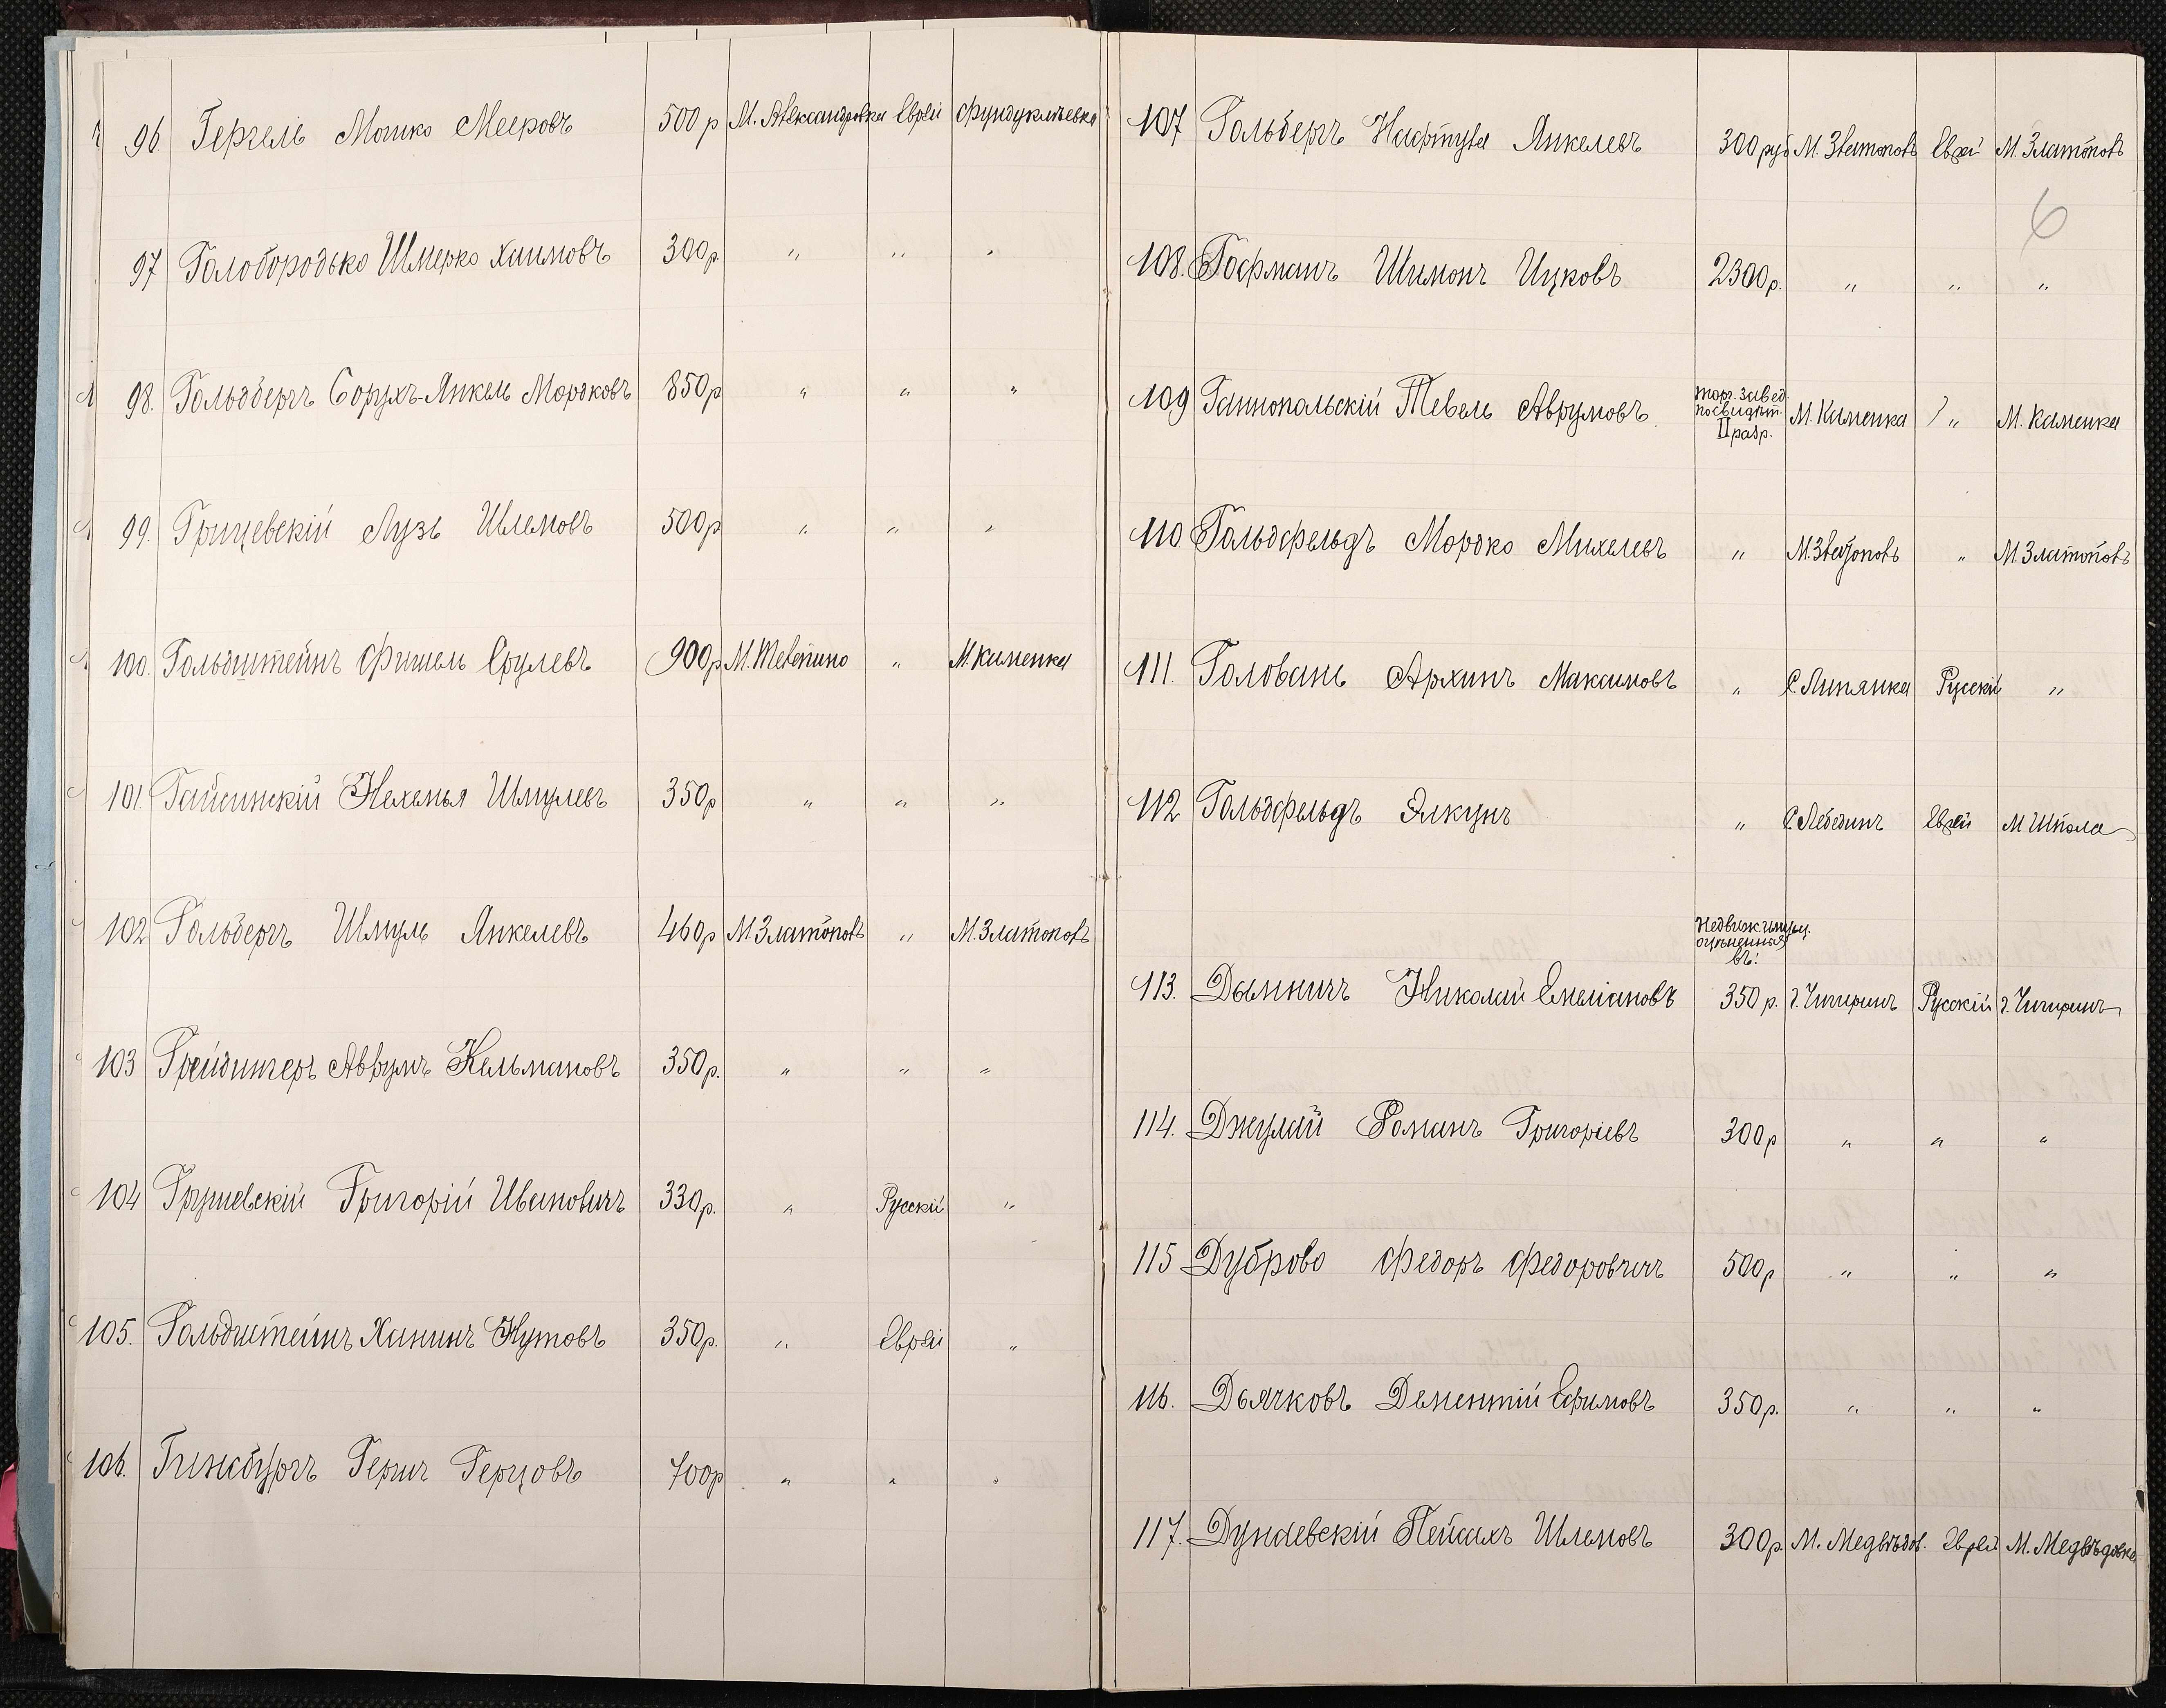 96. Гергель Мошко Мееровъ 500 р М. Александровка Еврей Фундуклѣевка
97 Голобородько Шмерко Хаимовъ 300р. " " "
98. Гольдбергъ Борухъ-Янкель Мордковъ 850р " " "
99. Грищевскій Лузь Шлемовъ 500р " " "
100. Гольдштейнъ Фишель Срулевъ 900р М. Телепино " М. Каменка
101. Гайсинскій Нехемья Шмулевъ 350р " " "
102 Гольдбергъ Шмуль Янкелевъ 460р М. Златополь " М. Златополь
103 Грейдингеръ Аврумъ Кельмановъ 350р. " " "
104 Грушевскій Григорій Ивановичъ 330р. " Русскій "
105. Гольдштейнъ Ханинъ Нутовъ 350р. " Еврей "
106. Гинсбургъ Гершъ Герцовъ 700р " " "
107 Гольбергъ Нафтула Янкелевъ 300 руб М. Златополь Еврей М. Златополь
6
108. Гофманъ Шимонъ Ицковъ 2300р. " " "
109 Ганнопольскій Тевель Аврумовъ торг. завед. по свидѣт. II разр. М. Каменка " М. Каменка
110. Гольдфельдъ Мордко Михелевъ " М. Златополь " М. Златополь
111. Головань Архипъ Максимовъ " С. Липянка Русскій "
112 Гольдфельдъ Элкунъ " С. Лебединъ Еврей М Шпола
Недвиж. имущ.
оцѣненная
въ:
113. Дымничъ Николай Емеліановъ 350 р. г. Чигиринъ Русскій г. Чигиринъ
114. Джулай Романъ Григоріевъ 300р " " "
115 Дуброво Федоръ Федоровичъ 500р " " "
116. Дьячковъ Дементій Ефимовъ 350р. " " "
117. Дунаевскій Пейсахъ Шлемовъ 300р. М. Медвѣдов. Еврей М. Медвѣдовка